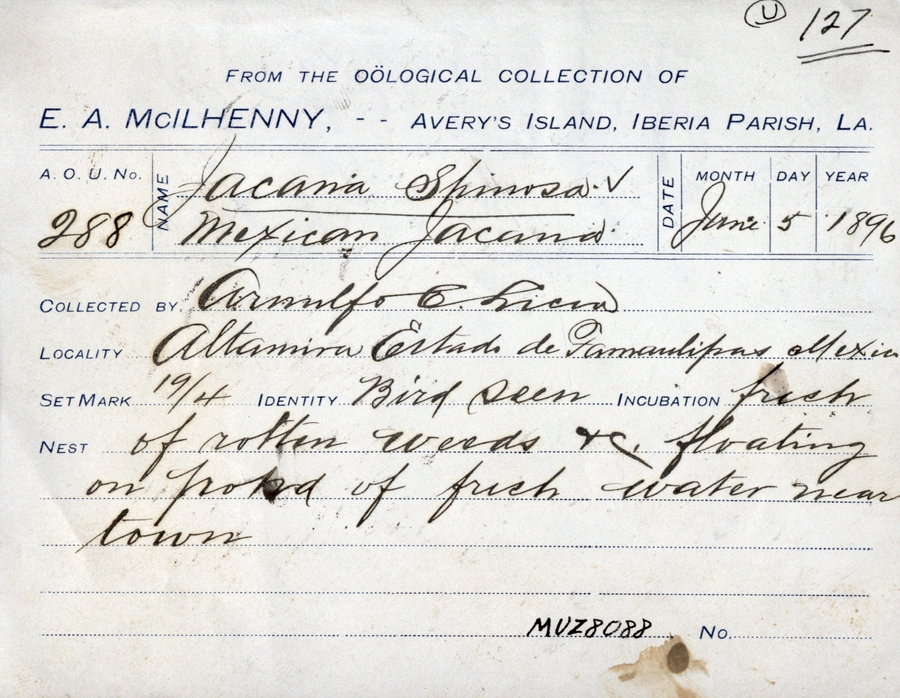 U 127
FROM THE OÖLOGICAL COLLECTION OF
E. A. MCILHENNY, - - AVERY'S ISLAND, IBERIA PARISH, LA.
A. O. U. No. NAME Jacana Spinosa. √ DATE MONTH DAY YEAR
288 Mexican Jacana June 5 1896
COLLECTED BY Arnulfo C.
LOCALITY Altamira Estado de Tamaulipas Mexico
SET MARK 19/4 IDENTITY Bird seen INCUBATION frech
NEST of rotten weeds &c. floating
on pond of frech water near
town
MUZ8088 No.